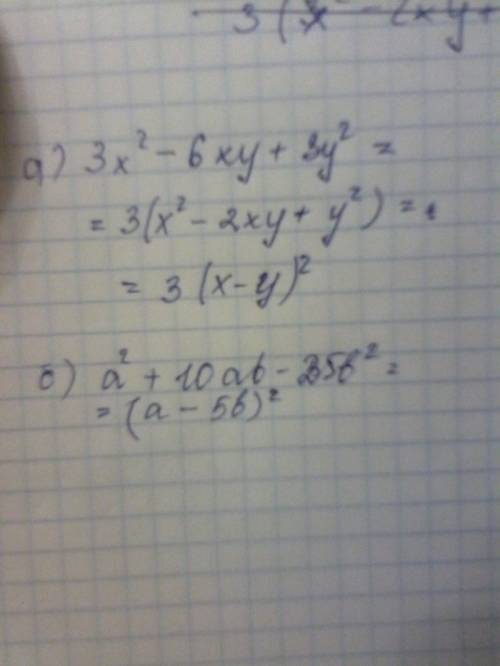 3(x² - 2xy +
а) 3x² - 6xy + 3y² =
= 3(x² - 2xy + y²) =
= 3(x-y)²
б) a² + 10ab - 25b² =
= (a - 5b)²